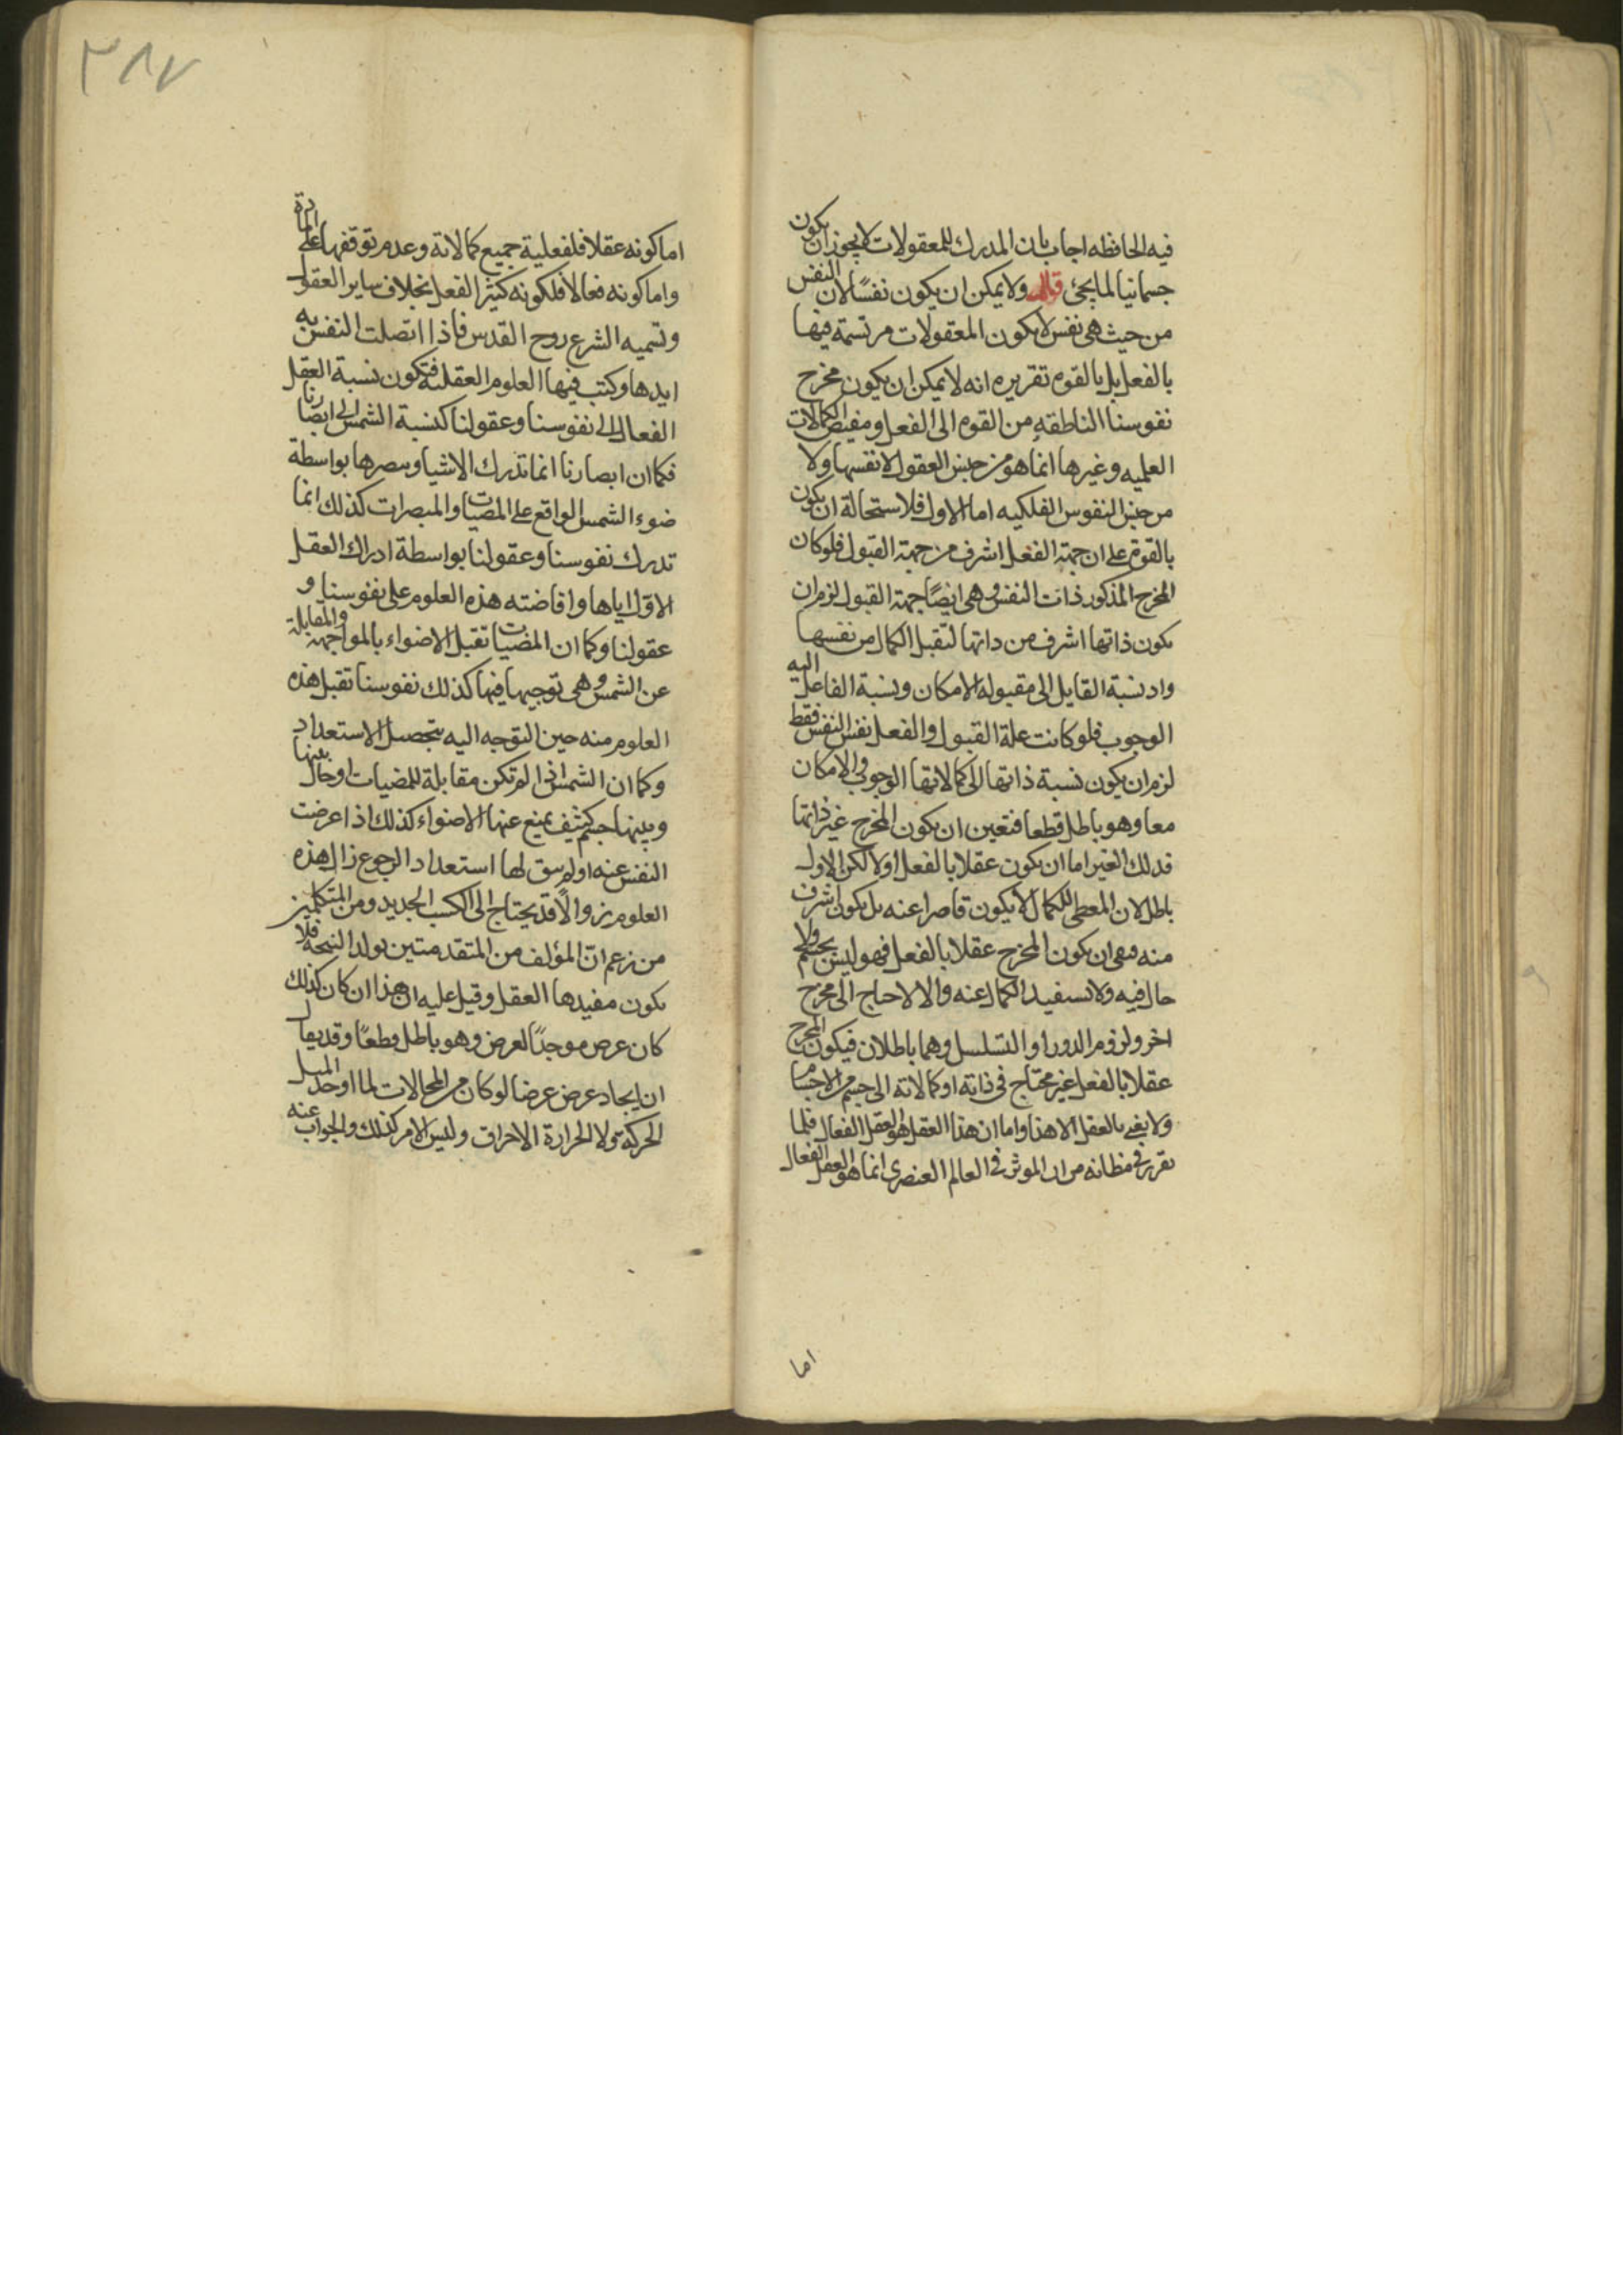 فيه الحافظه اجاب بان المدرك للمعقولات لا يجوز ان يكون
جسمانيا لما يجئ قال ولا يمكن ان يكون نفسًا لان النفس
من حيث هى نفس لا يكون المعقولات مرتسمة فيها
بالفعل بل بالقوه تقريره انه لا يمكن ان يكون مخرج
نفوسنا الناطقه من القوه الى الفعل ومفيض الكمالات
العلميه وغيرها انما هو من جنس العقول لا نفسها ولا
من جنس النفوس الفلكيه اما الاول فلاستحالة ان يكون
بالقوة على ان جهة الفعل اشرف من جهة القبول فلو كان
المخرج المذكور ذات النفس وهى ايضًا جهة القبول لزم ان
يكون ذاتها اشرف من ذاتها لتقبل الكمال من نفسها
واد نسبة القابل الى مقبوله الامكان ونسبة الفاعل اليه
الوجوب فلو كانت علة القبول والفعل نفس النفس فقط
لزم ان يكون نسبة ذاتها الى كمالاتها الوجوب والامكان
معا وهو باطل قطعا فتعين ان يكون المخرج غير ذاتها
فدلك الغير اما ان يكون عقلا بالفعل اولا لكن الاول
باطل لان المعطى للكمال لا يكون قاصرا عنه بل يكون اشرف
منه فبقى ان يكون المخرج عقلا بالفعل فهو ليس بجسم ولا
حال فيه ولا تستفيد الكمال عنه والا لاحتاج الى مخرج
اخر ولزوم الدور او التسلسل وهما باطلان فيكون المخرج
عقلا بالفعل غير محتاج فى ذاته او كمالاته الى جسم من الاجسام
ولا يغى بالعقل الا هذا واما ان هذا العقل هو العقل الفعال فلما
تقرر فى مظانه من ان الموثر فى العالم العنصرى انما هو العقل الفعال
اما
٣٨٧
اما كونه عقلا فلفعلية جميع كمالاته وعدم توقفها على المادة
واما كونه فعالا فلكونه كثير الفعل بخلاف ساير العقول
وتسميه الشرع روح القدس فاذا اتصلت النفس به
ايدها وكتب فيها العلوم العقلية فتكون نسبة العقل
الفعال الى نفوسنا وعقولنا كنسبة الشمس الى ابصارنا
فكما ان ابصارنا انما تدرك الاشيا وسصرها بواسطة
ضوء الشمس الواقع على المضيات والمبصرات كذلك انما
تدرك نفوسنا وعقولنا بواسطة ادراك العقل
الاول اياها وافاضته هذه العلوم على نفوسنا و
عقولنا وكما ان المضيات تقبل الاضواء بالمواجهة والمقابلة
عن الشمس وهى توجيها فيها كذلك نفوسنا تقبل هذه
العلوم منه حين التوجه اليه بتحصيل الاستعداد
وكما ان الشمس اذا لم تكن مقابلة للمضيات او حال بينها
وبينها جسم كثيف يمنع عنها الاضواء كذلك اذا عرضت
النفس عنه او لم يبق لها استعداد الرجوع زال هذه
العلوم زوالًا قد يحتاج الى الكسب الجديد ومن المتكلمين
من زعم انّ المؤلف من المتقدمتين يولد النتيجة فلا
يكون مفيدها العقل وقيل عليه ان هذا ان كان كذلك
كان عرض موجدًا لعرض وهو باطل قطعًا وقد يقال
ان ايجاد عرض عرضا لو كان من المحالات لما اوجد الميل
الحركة ولا الحرارة الاحراق وليس الامر كذلك والجواب عنه